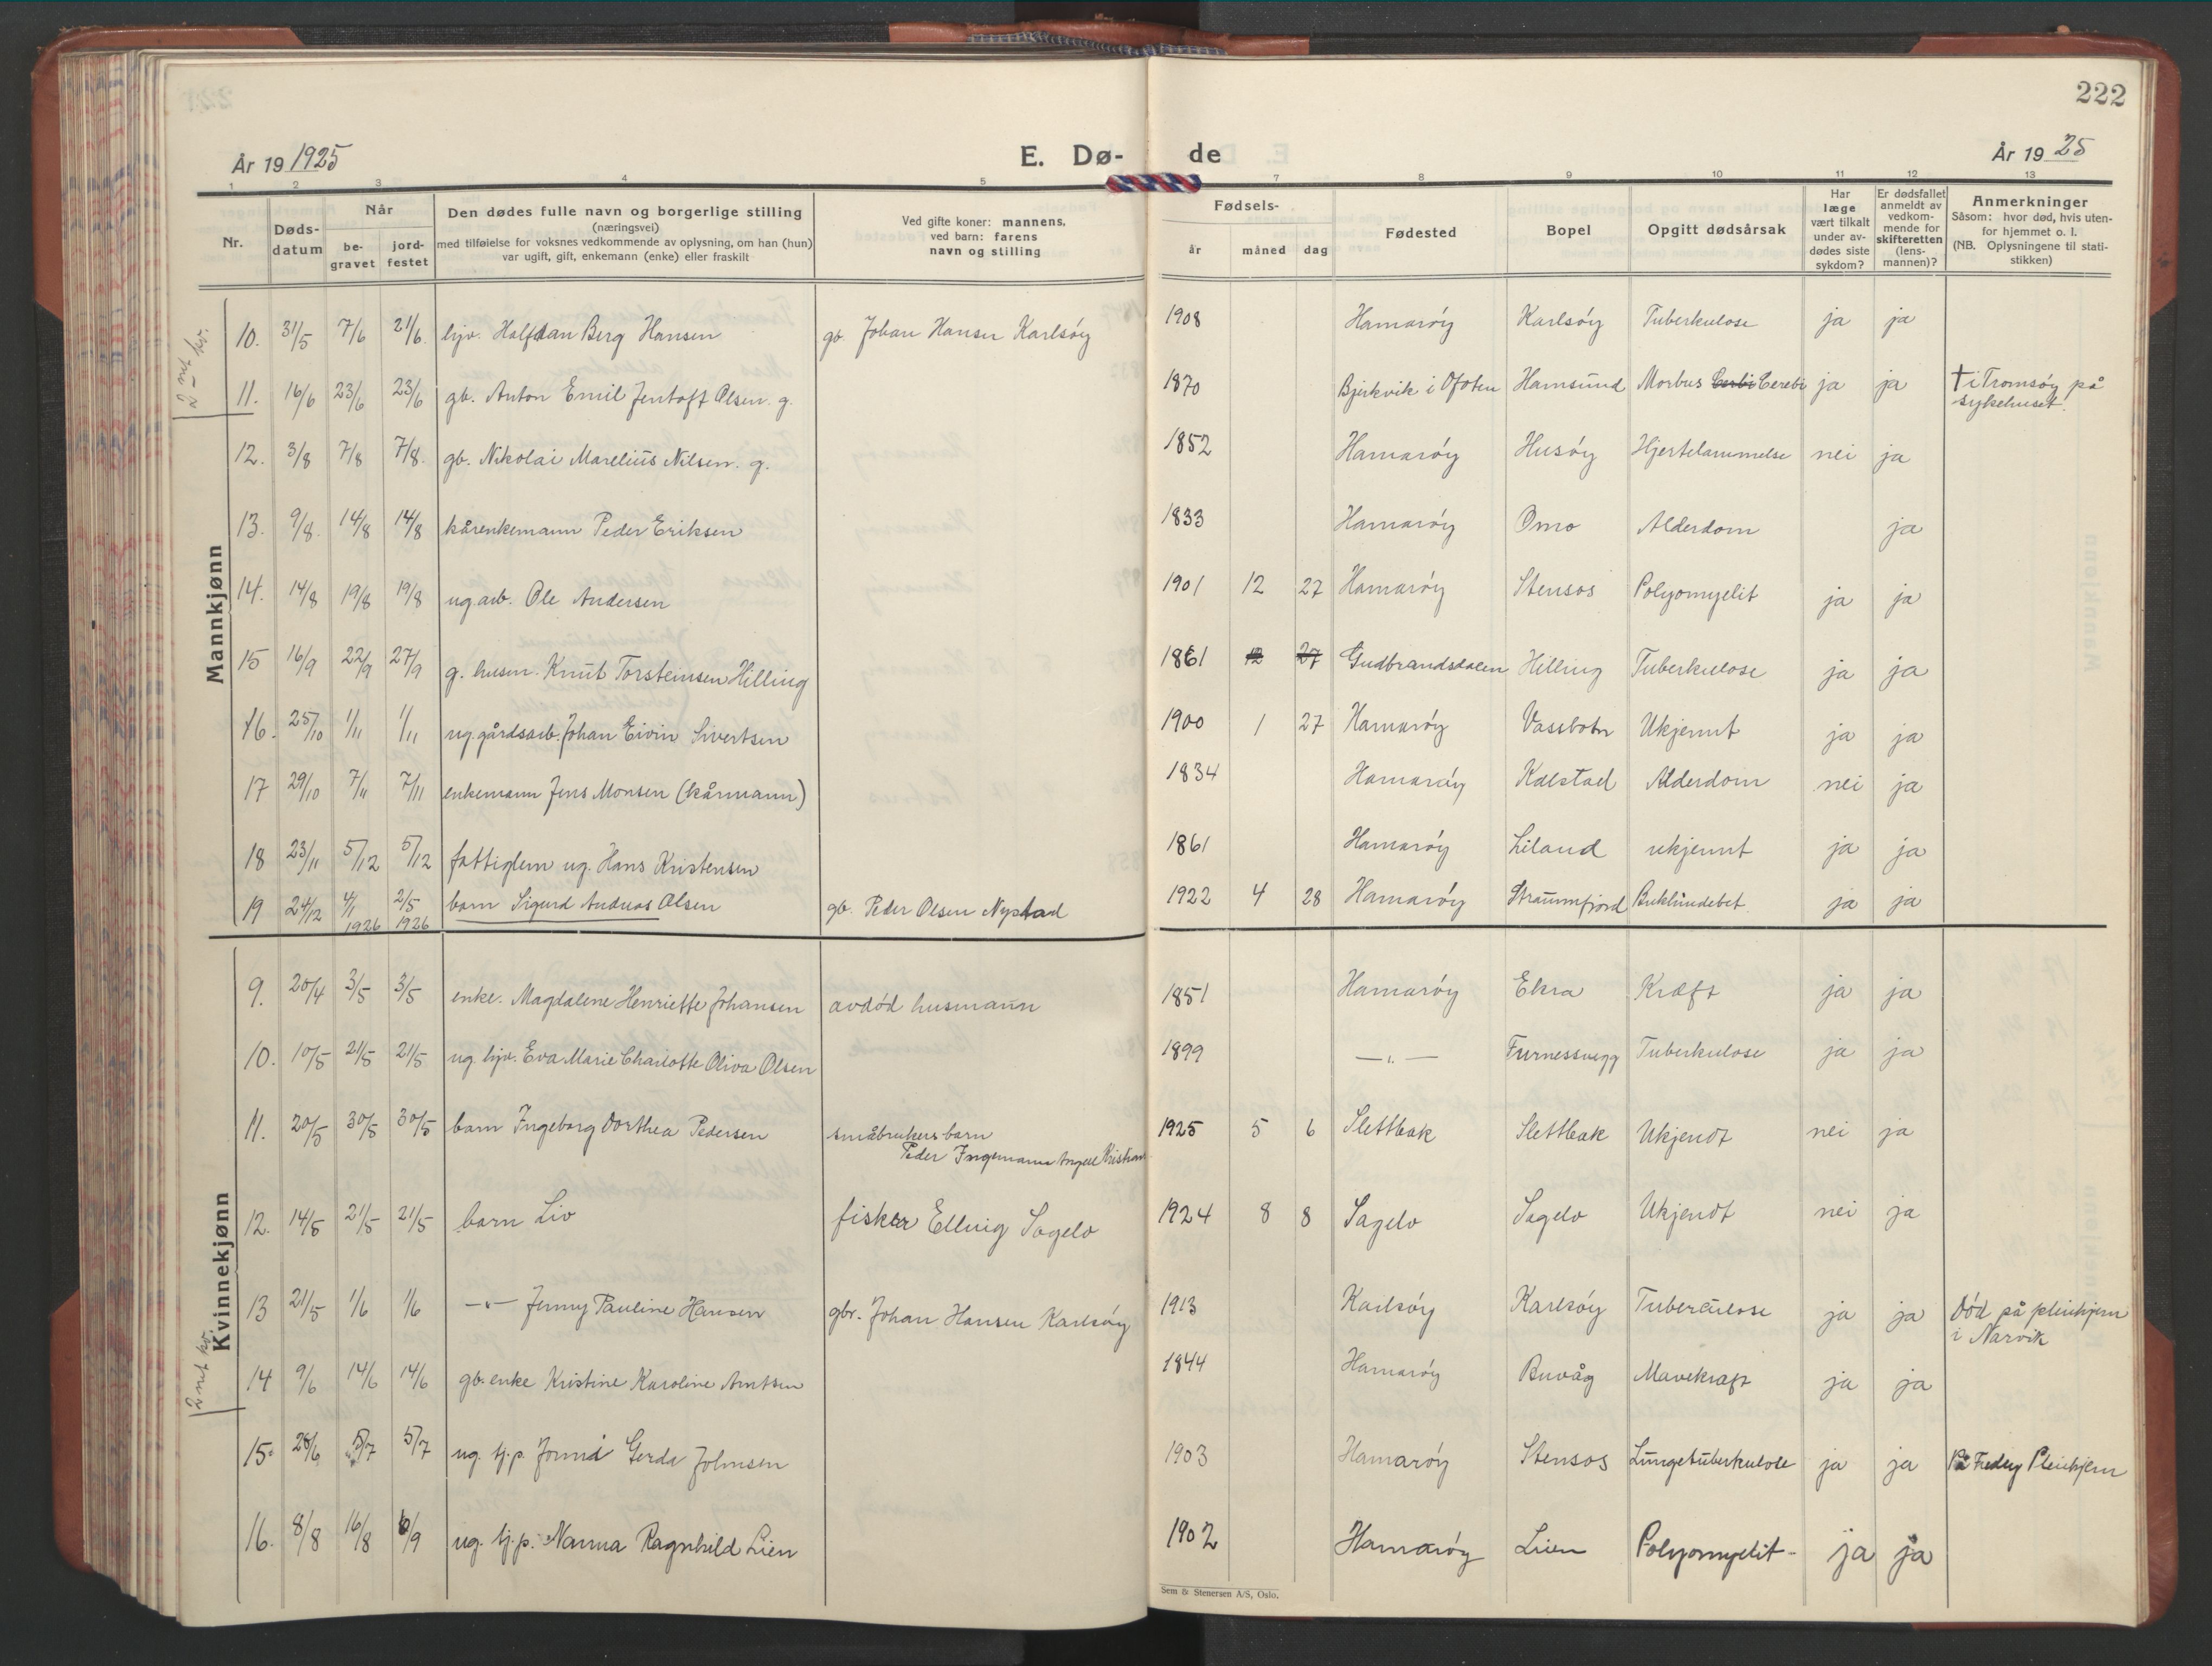 222
År 19 1925
E. Dø-
de
År 19 25
1 2 3 4 5 7 8 9 10 11 12 13
Nr.
Døds-
datum
Når
be-
gravet
jord-
festet
Den dødes fulle navn og borgerlige stilling
(næringsvei)
med tilføielse for voksnes vedkommende av oplysning, om han (hun)
var ugift, gift, enkemann (enke) eller fraskilt
Ved gifte koner: mannens,
ved barn: farens
navn og stilling
Fødsels-
år måned dag
Fødested
Bopel
Opgitt dødsårsak
Har
læge
vært tilkalt
under av-
dødes siste
sykdom?
Er dødsfallet
anmeldt av
vedkom-
mende for
skifteretten
(lens-
mannen)?
Anmerkninger
Såsom: hvor død, hvis uten-
for hjemmet o. l.
(NB. Oplysningene til stati-
stikken)
Mannkjønn
2-net kv.
10. 31/5 7/6 21/6. hjv. Halfdan Berg Hansen gb. Johan Hansen Karlsöy 1908 Hamaröy Karlsöy Tuberkulose ja ja
11. 16/6 23/6 23/6 gb. Anton Emil Jentoft Olsen. g. 1870 Bjerkvik i Ofoten Hamsund Morbus Cerbi Cerebi ja ja † i Tromsöy på
sykehuset.
12. 3/8 7/8 7/8. gb. Nikolai Marelius Nilsen. g. 1852 Hamaröy Husöy Hjertelammelse nei ja
13. 9/8. 14/8 14/8 kårenkemann Peder Eriksen 1833 Hamaröy Omo Alderdom ja
14. 14/8 19/8 19/8 ug. arb. Ole Andersen 1901 12 27 Hamaröy Stensos Polyomyelit ja ja
15 16/9 22/9 27/9 g. husm. Knut Torsteinsen Hilling 1861 12 27 Gudbrandsdalen Hilling Tuberkulose ja ja
16. 25/10 1/11 1/11 ug. gårdsarb. Johan Eivin Sivertsen 1900 1 27 Hamaröy Vassbotn Ukjennt ja ja
17 29/10 7/11 7/11 enkemann Jens Monsen (kårmann) 1834 Hamaröy Kalstad Alderdom nei ja
18 23/11 5/12 5/12 fattiglem ug. Hans Kristensen 1861 Hamaröy Liland ukjennt ja ja
19 24/12 4/1 1926 2/5 1926 barn Sigurd Andreas Olsen gb. Peder Olsen Nystad 1922 4 28 Hamaröy Straumfjord Bukhindebet. ja ja
Kvinnekjønn
9. 20/4 3/5 3/5 enke. Magdalene Henriette Johansen avdöd husmann 1851 Hamaröy Ekra Kræft ja ja
10. 10/5 21/5 21/5 ug. hjv. Eva Marie Charlotte Oliva Olsen 1899 —"— Furnessvegg Tuberkulose ja ja
11. 20/5 30/5 30/5 barn Ingeborg Dorthea Pedersen småbrukers barn
Peder Ingemann Angell Kristian 1925 5 6 Slettbak Slettbak Ukjendt nei ja
12. 14/5 21/5 21/5 barn Liv fisker Elling Sagelv 1924 8 8 Sagelv Sagelv Ukjendt nei ja
13 21/5 1/6 1/6 —"— Jenny Pauline Hansen gbr. Johan Hansen Karlsöy 1913 Karlsöy Karlsöy Tuberculose ja ja Död på pleiehjem
i Narvik
2 net kv.
14 9/6 14/6 14/6 gb. enke Kristine Karoline Arntsen 1844 Hamaröy Buvåg Mavekræft ja ja
15. 28/6 5/7 5/7 ug. tj.p. Gerda Johnsen 1903 Hamaröy Stensos Lungetuberkulose ja ja På Pleiehjem
16. 8/8 16/8 6/9 ug. tj.p. Nanna Ragnhild Lien 1902 Hamaröy Lien Polyomyelit- ja ja
Sem & Stenersen A/S, Oslo.